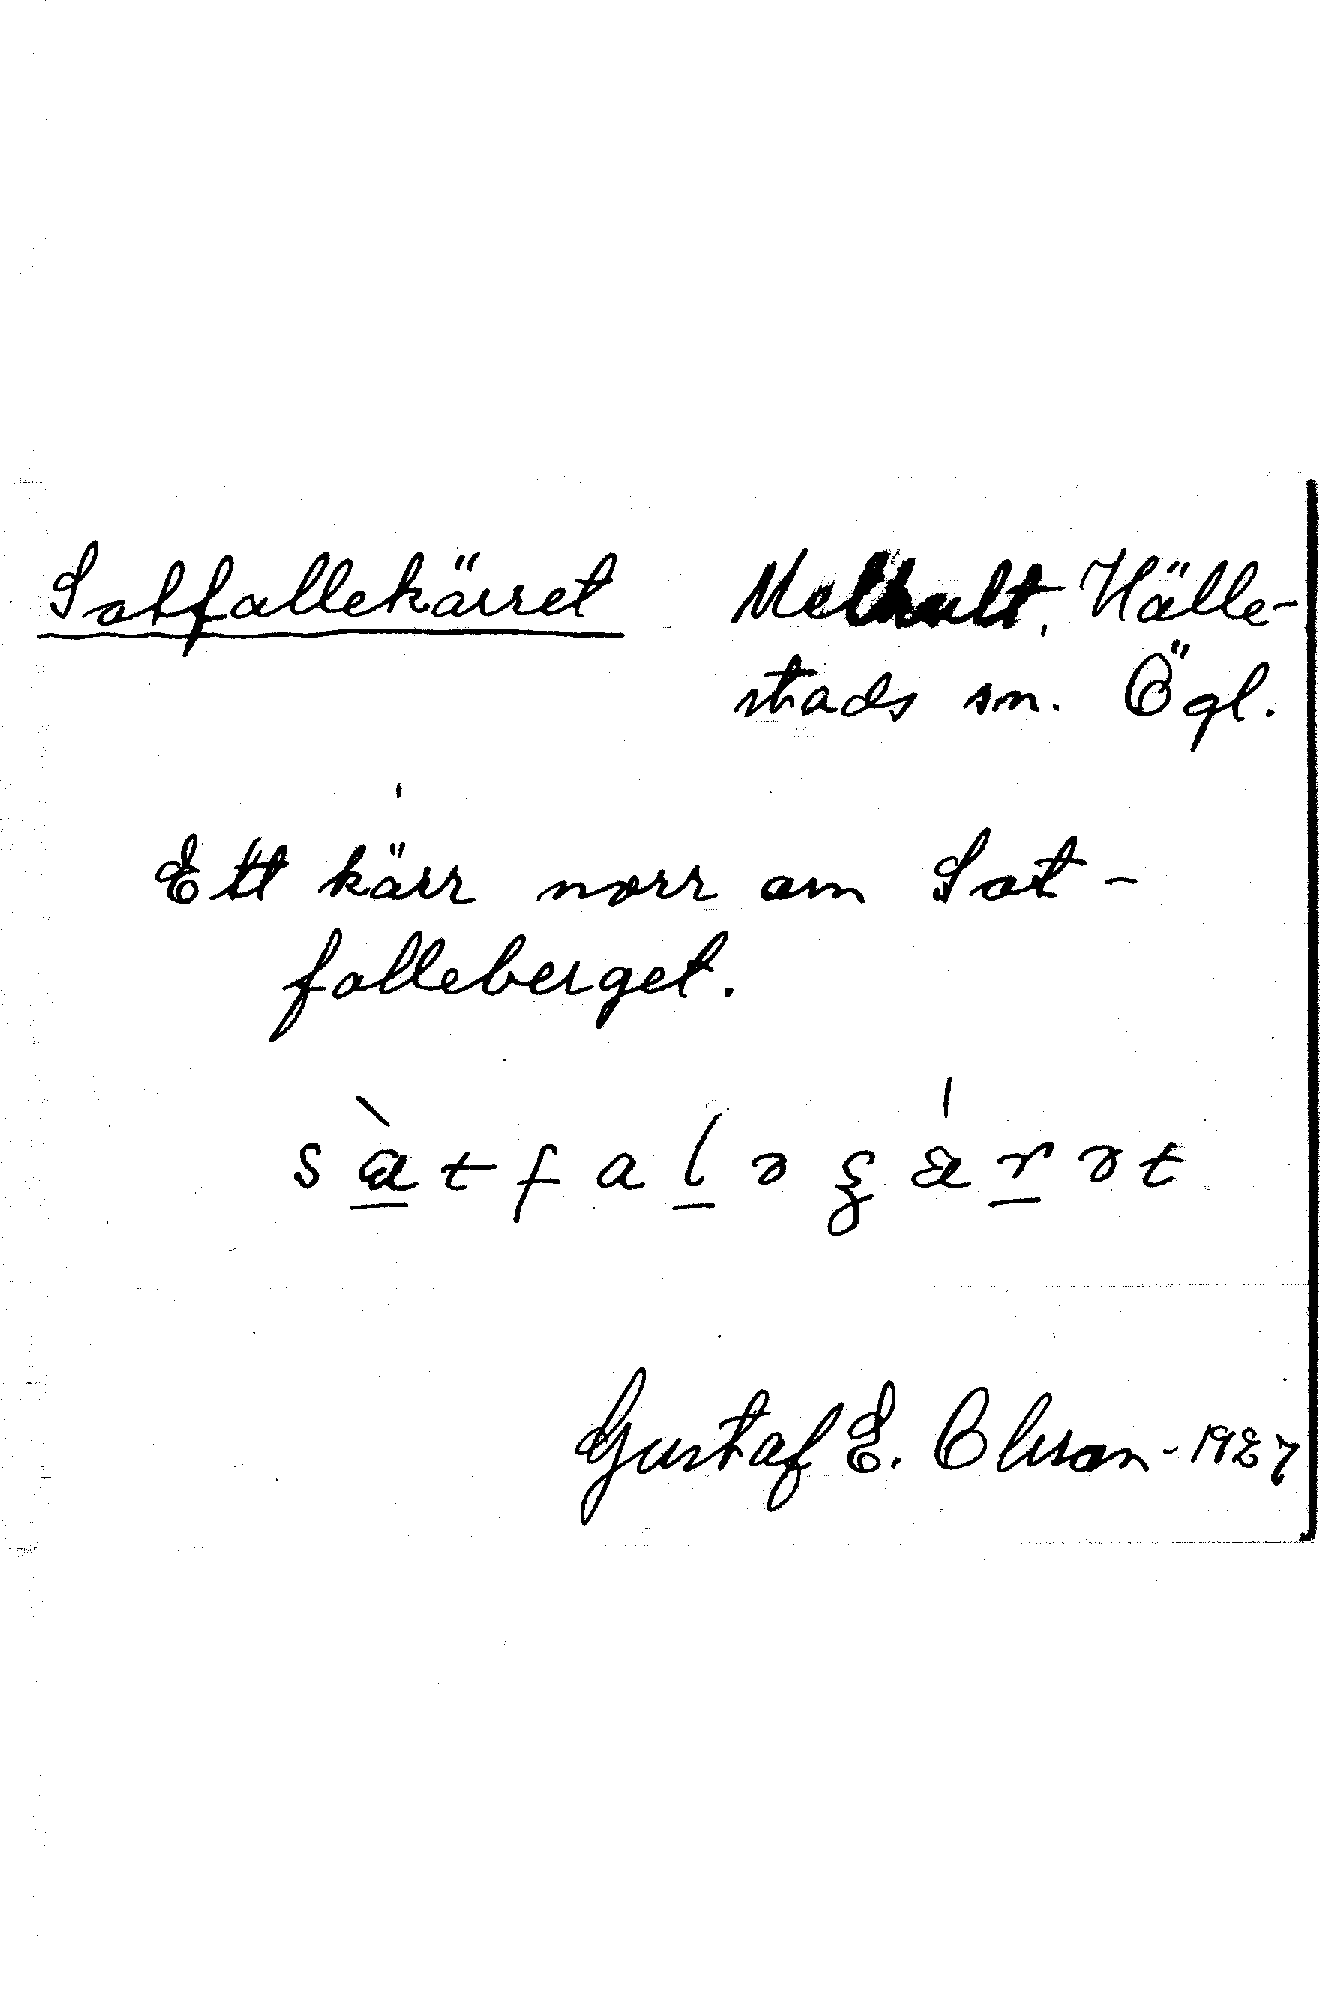 Satfallekärret Melhult, Hälle-
stads sn. Ögl.
Ett kärr norr om Sat-
falleberget.
Gustaf E. Olsson - 1927